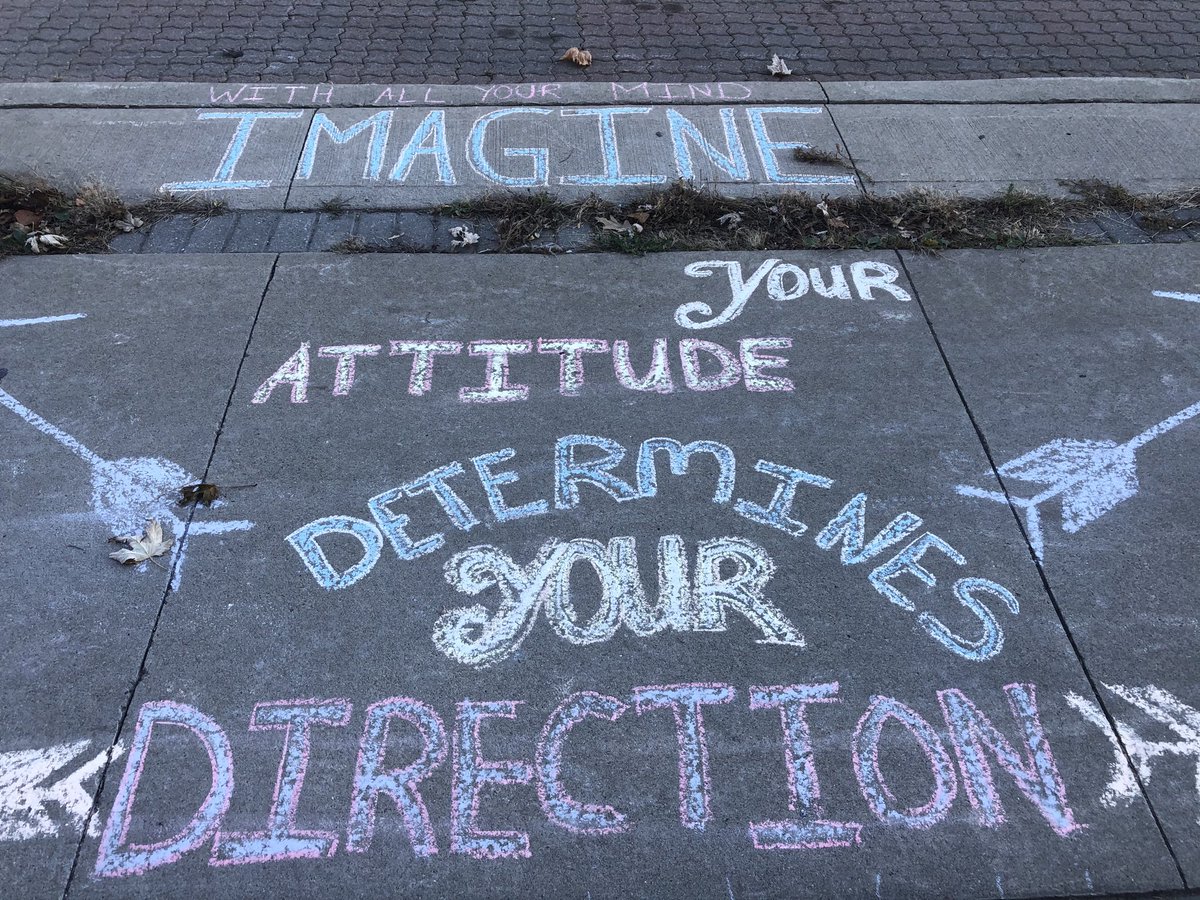 WITH ALL YOUR MIND
IMAGINE
YOUR
ATTITUDE
DETERMINES
YOUR
DIRECTION